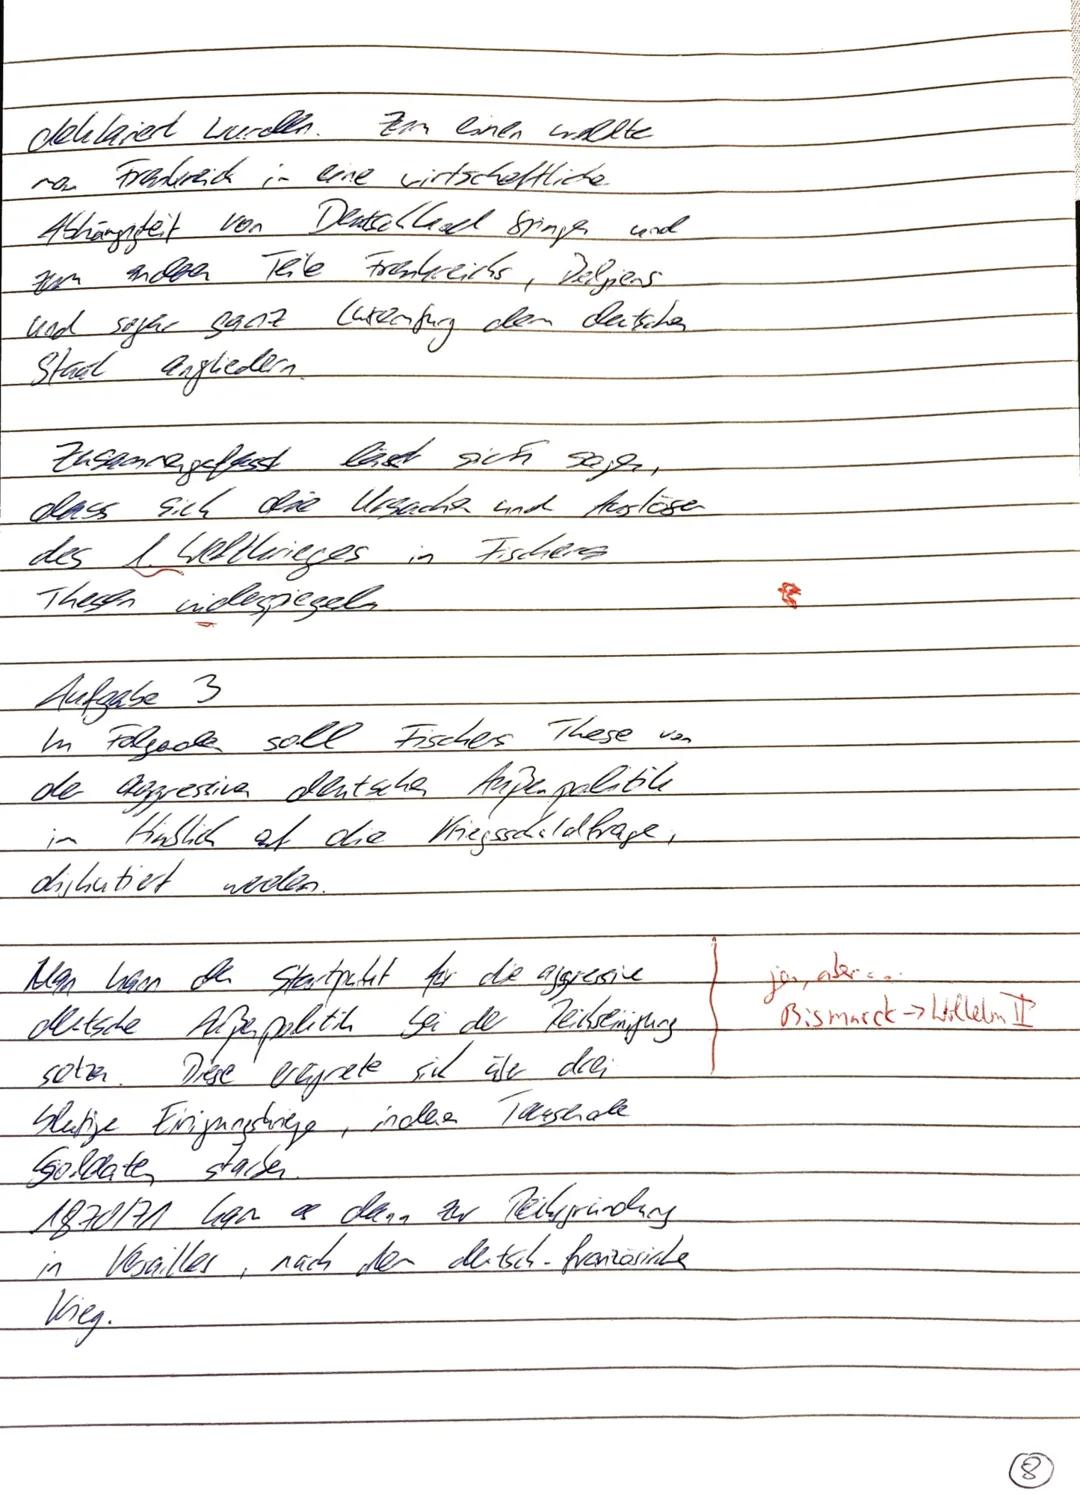 deklariert wurden. Zum einen wollte
man Frankreich in eine wirtschaftliche
Abhängigkeit von Deutschland bringen und
zum anderen Teile Frankreichs, Belgiens
und sogar ganz Luxemburg dem deutschen
Staat angliedern.
Zusammengefasst lässt sich sagen,
dass sich die Ursachen und Auslöser
des 1. Weltkrieges in Fischers
Thesen widerspiegeln
Aufgabe 3
Im Folgenden soll Fischers These von
der aggressiven deutschen Außenpolitik
im Hinblick auf die Kriegsschuldfrage,
diskutiert werden.
Man kann den Startpunkt für die aggressive
deutsche Außenpolitik bei der Reichseinigung
setzen. Diese ereignete sich über drei
blutige Einigungskriege, in denen Tausende
Soldaten starben.
1870/71 kam es dann zur Reichsgründung
in Versailles, nach dem deutsch-französischen
Krieg.
ja, aber...
Bismarck → Wilhelm II
8